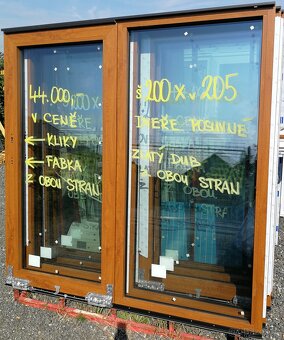 44.000,-
V CENĚ
← KLIKY
← FABKA
Z OBOU STRAN
Š 200 X V 205
DVEŘE POSUVNÉ
ZLATÝ DUB
Z OBOU STRAN